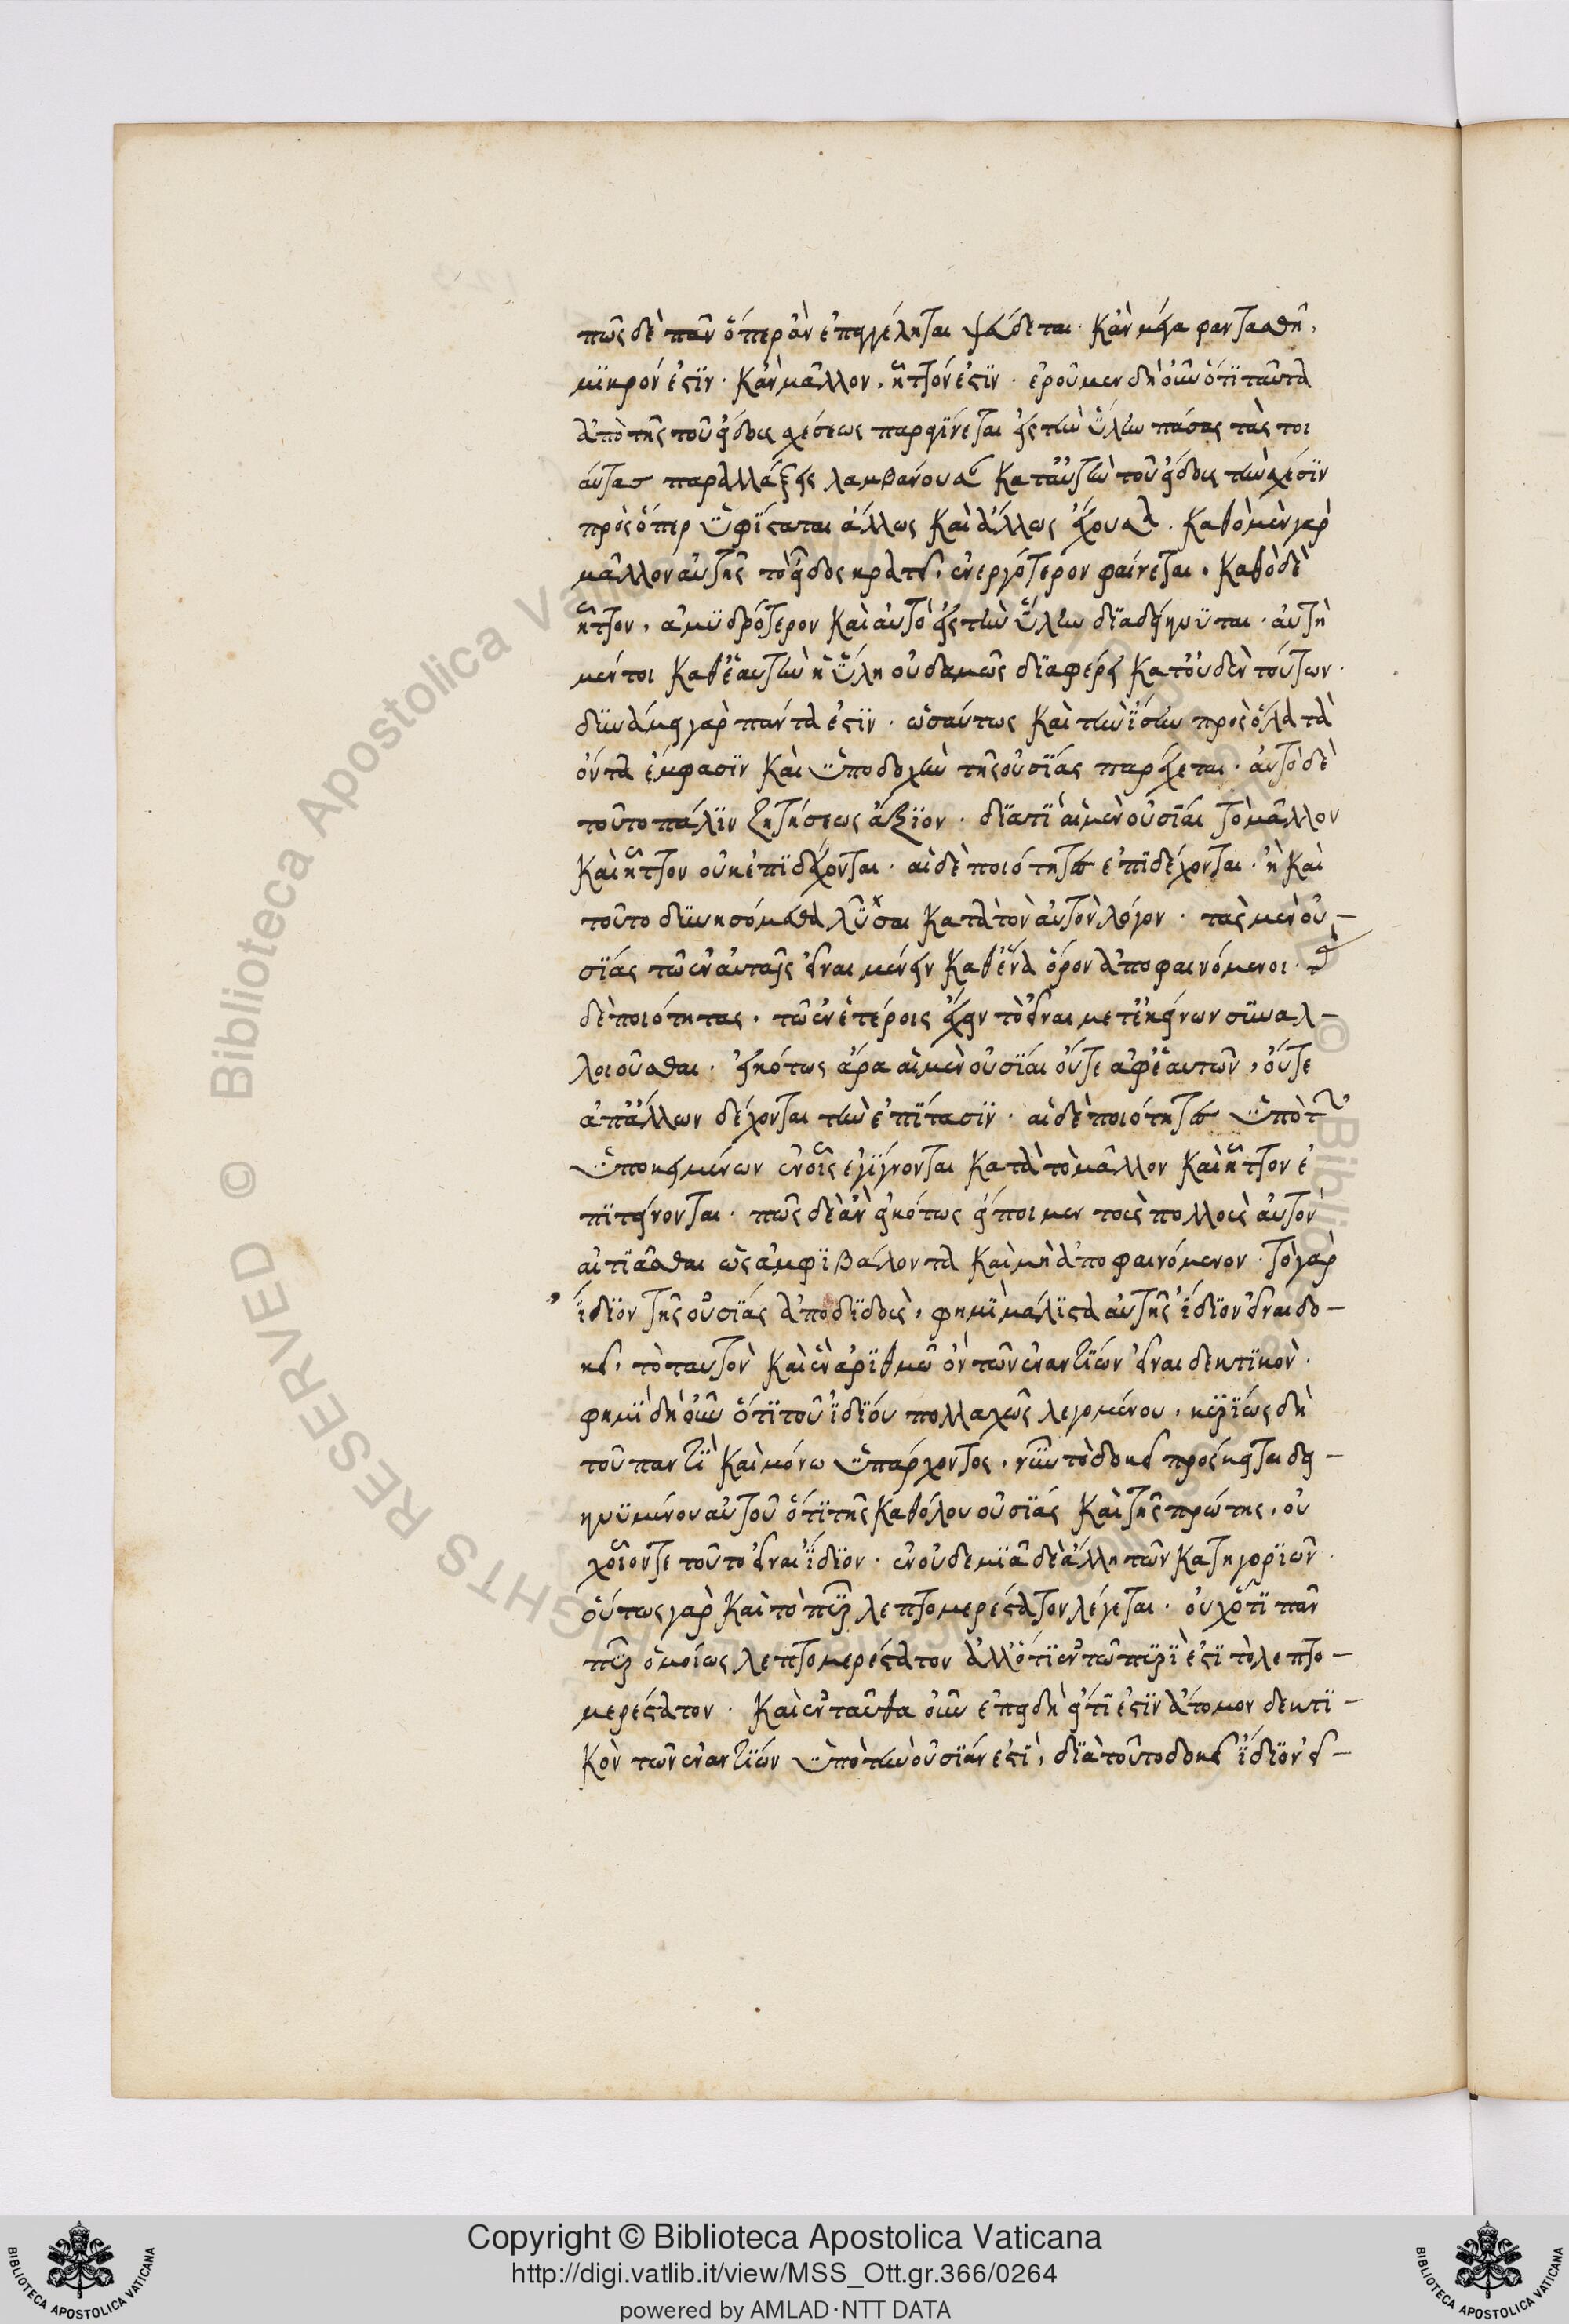 πῶς δὲ πᾶν ὅπερ ἂν ἐπαγγέληται ψεύδεται. κἂν μέγα φαντασθῆ,
μϊκρόν ἐστϊν. κἂν μᾶλλον, ἧττόν ἐστϊν. ἐροῦμεν δὴ οὖν ὅτϊ ταῦτα
ἀπὸ τῆς τοῦ εἴδους σχέσεως παραγϊνεται εἰς τὴν ὕλην πάσας τὰς τοι
αύτας παραλλάξεις λαμβάνουσα κατ' αὐτὴν τοῦ εἴδους τὴν σχέσϊν
πρὸς ὅπερ ὑφϊσταται ἄλλως καὶ ἄλλως ἔχουσα. καθὸ μὲν γὰρ
μᾶλλον αὐτῆς τὸ εἶδος κρατεῖ, ἐνεργότερον φαίνεται. καθὸ δὲ
ἧττον, ἀμϋδρότερον καὶ αὐτὸ εἰς τὴν ὕλην δϊαδείκνϋται. αὐτὴ
μέντοι καθ' ἑαυτὴν ἡ ὕλη οὐδαμῶς δϊαφέρει κατ' οὐδὲν τούτων.
δϋνάμει γὰρ πάντα ἐστϊν. ὡσαύτως καὶ τὴν ἴσην πρὸς ὅλα τὰ
ὄντα ἔμφασϊν καὶ ὑποδοχὴν τῆς οὐσϊας παρέχεται. αὐτὸ δὲ
τοῦτο πάλϊν ζητήσεως ἄξϊον. δϊατϊ αἱ μὲν οὐσϊαι τὸ μᾶλλον
καὶ ἧττον οὐκ ἐπϊδέχονται. αἱ δὲ ποιότητες ἐπϊδέχονται. ἢ καὶ
τοῦτο δϋνησόμεθα λῦσαι κατὰ τὸν αὐτὸν λόγον. τὰς μὲν οὐ-
σϊας τῶ ἐν αὐταῖς εἶναι μένειν καθ' ἕνα ὅρον ἀποφαινόμενοι. τὰς
δὲ ποιότητας, τῶ ἐν ἑτέροις ἔχειν τὸ εἶναι μετ' ἐκείνων σϋναλ-
λοιοῦσθαι. εἰκότως ἄρα αἱ μὲν οὐσϊαι οὔτε ἀφ' ἑαυτῶν, οὔτε
ἀπ' ἄλλων δέχονται τὴν ἐπϊτασϊν. αἱ δὲ ποιότητες ὑπὸ τῶν
ὑποκειμένων ἐν οἷς ἐγϊγνονται κατὰ τὸ μᾶλλον καὶ ἧττον ἐ
πϊτείνονται. πῶς δὲ ἂν εἰκότως εἴποιμεν τοῖς πολλοῖς αὐτὸν
αἰτϊᾶσθαι ὡς ἀμφϊβάλοντα καὶ μὴ ἀποφαινόμενον. τὸ γὰρ
ἴδϊον τῆς οὐσϊας ἀποδϊδοὺς, φημϊ μάλϊστα αὐτῆς ἴδϊον εἶναι δο-
κεῖ, τὸ ταυτὸν καὶ ἓν ἀρϊθμῶ ὂν τῶν ἐναντϊων εἶναι δεκτϊκὸν.
φημϊ δὴ οὖν ὅτϊ τοῦ ἰδϊου πολλαχῶς λεγομένου, κϋρϊως δὴ
τοῦ παντϊ καὶ μόνω ὑπάρχοντος, νῦν τὸ δοκεῖ πρόσκειται δει-
κνϋμένου αὐτοῦ ὅτϊ τῆς καθόλου οὐσϊας καὶ τῆς πρώτης, οὐ
χ οἷόν τε τοῦτο εἶναι ἴδϊον. ἐν οὐδεμϊᾶ δὲ ἄλλη τῶν κατηγορϊῶν.
οὕτως γὰρ καὶ τὸ πῦρ λεπτομερέστατον λέγεται. οὐχ ὅτϊ πᾶν
πῦρ ὁμοίως λεπτομερέστατον ἀλλ' ὅτϊ ἐν τῶ πϋρϊ ἐστϊ τὸ λεπτο-
μερέστατον. καὶ ἐνταῦθα οὖν ἐπειδὴ εἴ τϊ ἐστϊν ἄτομον δεκτϊ-
κὸν τῶν ἐναντϊων ὑπὸ τὴν οὐσϊαν ἐστϊ, δϊα τοῦτο δοκεῖ ἴδϊον εἶ-
Copyright © Biblioteca Apostolica Vaticana
http://digi.vatlib.it/view/MSS_Ott.gr.366/0264
powered by AMLAD·NTT DATA
BIBLIOTECA APOSTOLICA VATICANA
BIBLIOTECA APOSTOLICA VATICANA